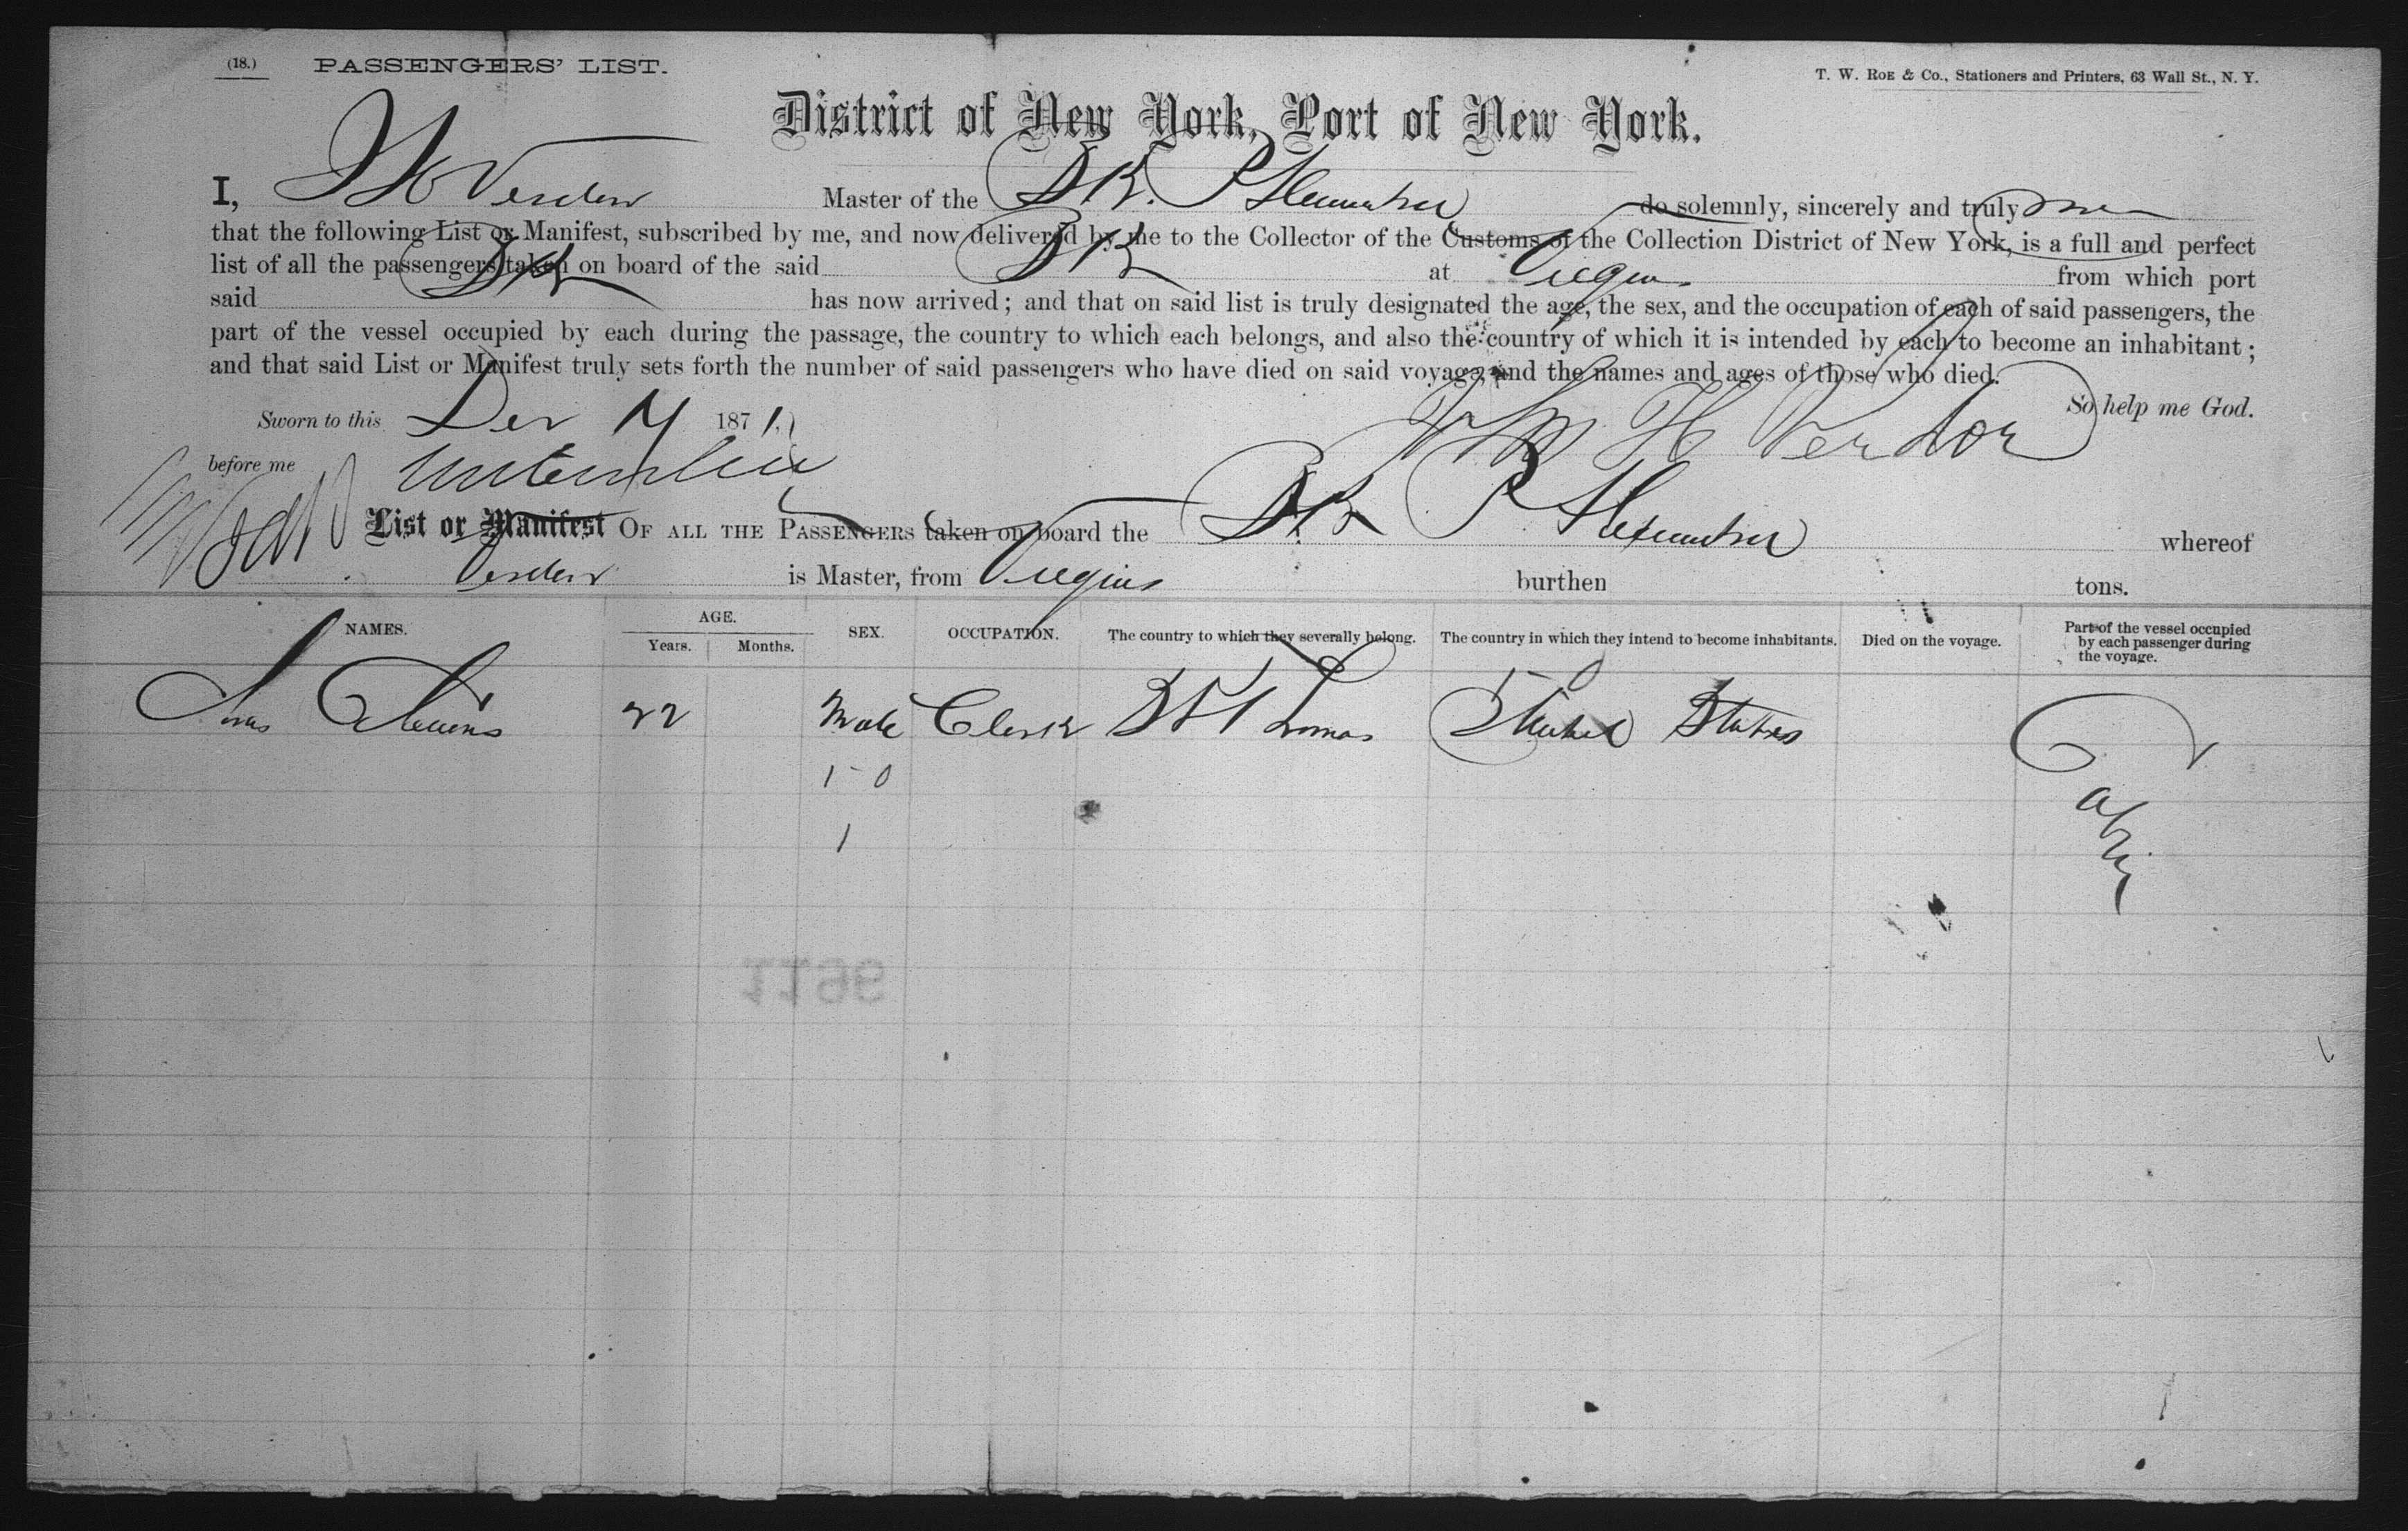 (18.) PASSENGERS' LIST.
T. W. ROE & Co., Stationers and Printers, 63 Wall St., N. Y.
District of New York, Port of New York.
I, Master of the do solemnly, sincerely and truly
that the following List or Manifest, subscribed by me, and now delivered by me to the Collector of the Customs of the Collection District of New York, is a full and perfect
list of all the passengers taken on board of the said at from which port
said has now arrived; and that on said list is truly designated the age, the sex, and the occupation of each of said passengers, the
part of the vessel occupied by each during the passage, the country to which each belongs, and also the country of which it is intended by each to become an inhabitant;
and that said List or Manifest truly sets forth the number of said passengers who have died on said voyage, and the names and ages of those who died.
So help me God.
Sworn to this 1871
Wm H Verdon
before me
List or Manifest OF ALL THE PASSENGERS taken on board the whereof
is Master, from burthen tons.
NAMES. AGE. Years. Months. SEX. OCCUPATION. The country to which they severally belong. The country in which they intend to become inhabitants. Died on the voyage. Part of the vessel occupied by each passenger during the voyage.
22 Male Clerk St Thomas United States Cabin
1 0
1
1196